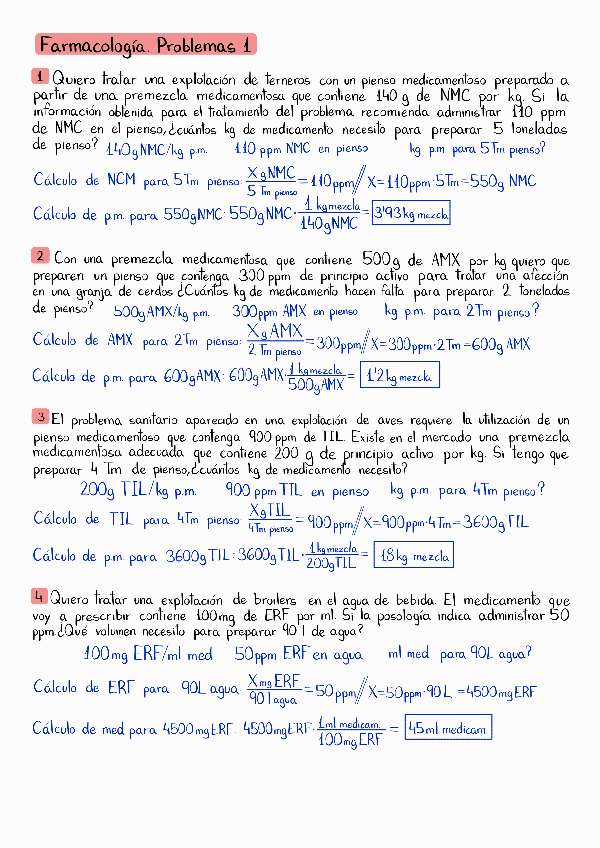 Farmacología. Problemas 1
1 Quiero tratar una explotación de terneros con un pienso medicamentoso preparado a
partir de una premezcla medicamentosa que contiene 140 g de NMC por kg. Si la
información obtenida para el tratamiento del problema recomienda administrar 110 ppm
de NMC en el pienso, ¿cuántos kg de medicamento necesito para preparar 5 toneladas
de pienso? 140g NMC/kg p.m. 110 ppm NMC en pienso kg p.m para 5Tm pienso?
Cálculo de NCM para 5Tm pienso: X g NMC / 5 Tm pienso = 110ppm // X=110ppm·5Tm=550g NMC
Cálculo de p.m. para 550gNMC: 550gNMC · 1 kg mezcla / 140gNMC = 3'93 kg mezcla
2 Con una premezcla medicamentosa que contiene 500g de AMX por kg quiero que
preparen un pienso que contenga 300 ppm de principio activo para tratar una afección
en una granja de cerdos ¿Cuántos kg de medicamento hacen falta para preparar 2 toneladas
de pienso? 500gAMX/kg p.m. 300ppm AMX en pienso kg p.m. para 2Tm pienso?
Cálculo de AMX para 2Tm pienso: X g AMX / 2 Tm pienso = 300ppm // X=300ppm·2Tm=600g AMX
Cálculo de p.m. para 600gAMX: 600gAMX · 1 kg mezcla / 500gAMX = 1'2 kg mezcla
3 El problema sanitario aparecido en una explotación de aves requiere la utilización de un
pienso medicamentoso que contenga 900 ppm de TIL. Existe en el mercado una premezcla
medicamentosa adecuada que contiene 200 g de principio activo por kg. Si tengo que
preparar 4 Tm de pienso, ¿cuántos kg de medicamento necesito?
200g TIL/kg p.m. 900 ppm TIL en pienso kg p.m. para 4Tm pienso?
Cálculo de TIL para 4Tm pienso: XgTIL / 4Tm pienso = 900ppm // X=900ppm·4Tm=3600gTIL
Cálculo de p.m. para 3600gTIL: 3600gTIL · 1 kg mezcla / 200gTIL = 18 kg mezcla
4 Quiero tratar una explotación de broilers en el agua de bebida. El medicamento que
voy a prescribir contiene 100mg de ERF por ml. Si la posología indica administrar 50
ppm ¿Qué volumen necesito para preparar 90 l de agua?
100mg ERF/ml med 50ppm ERF en agua ml med para 90L agua?
Cálculo de ERF para 90L agua: XmgERF / 90 l agua = 50ppm // X=50ppm·90L =4500mgERF
Cálculo de med para 4500mgERF: 4500mgERF · 1ml medicam. / 100mgERF = 45ml medicam.